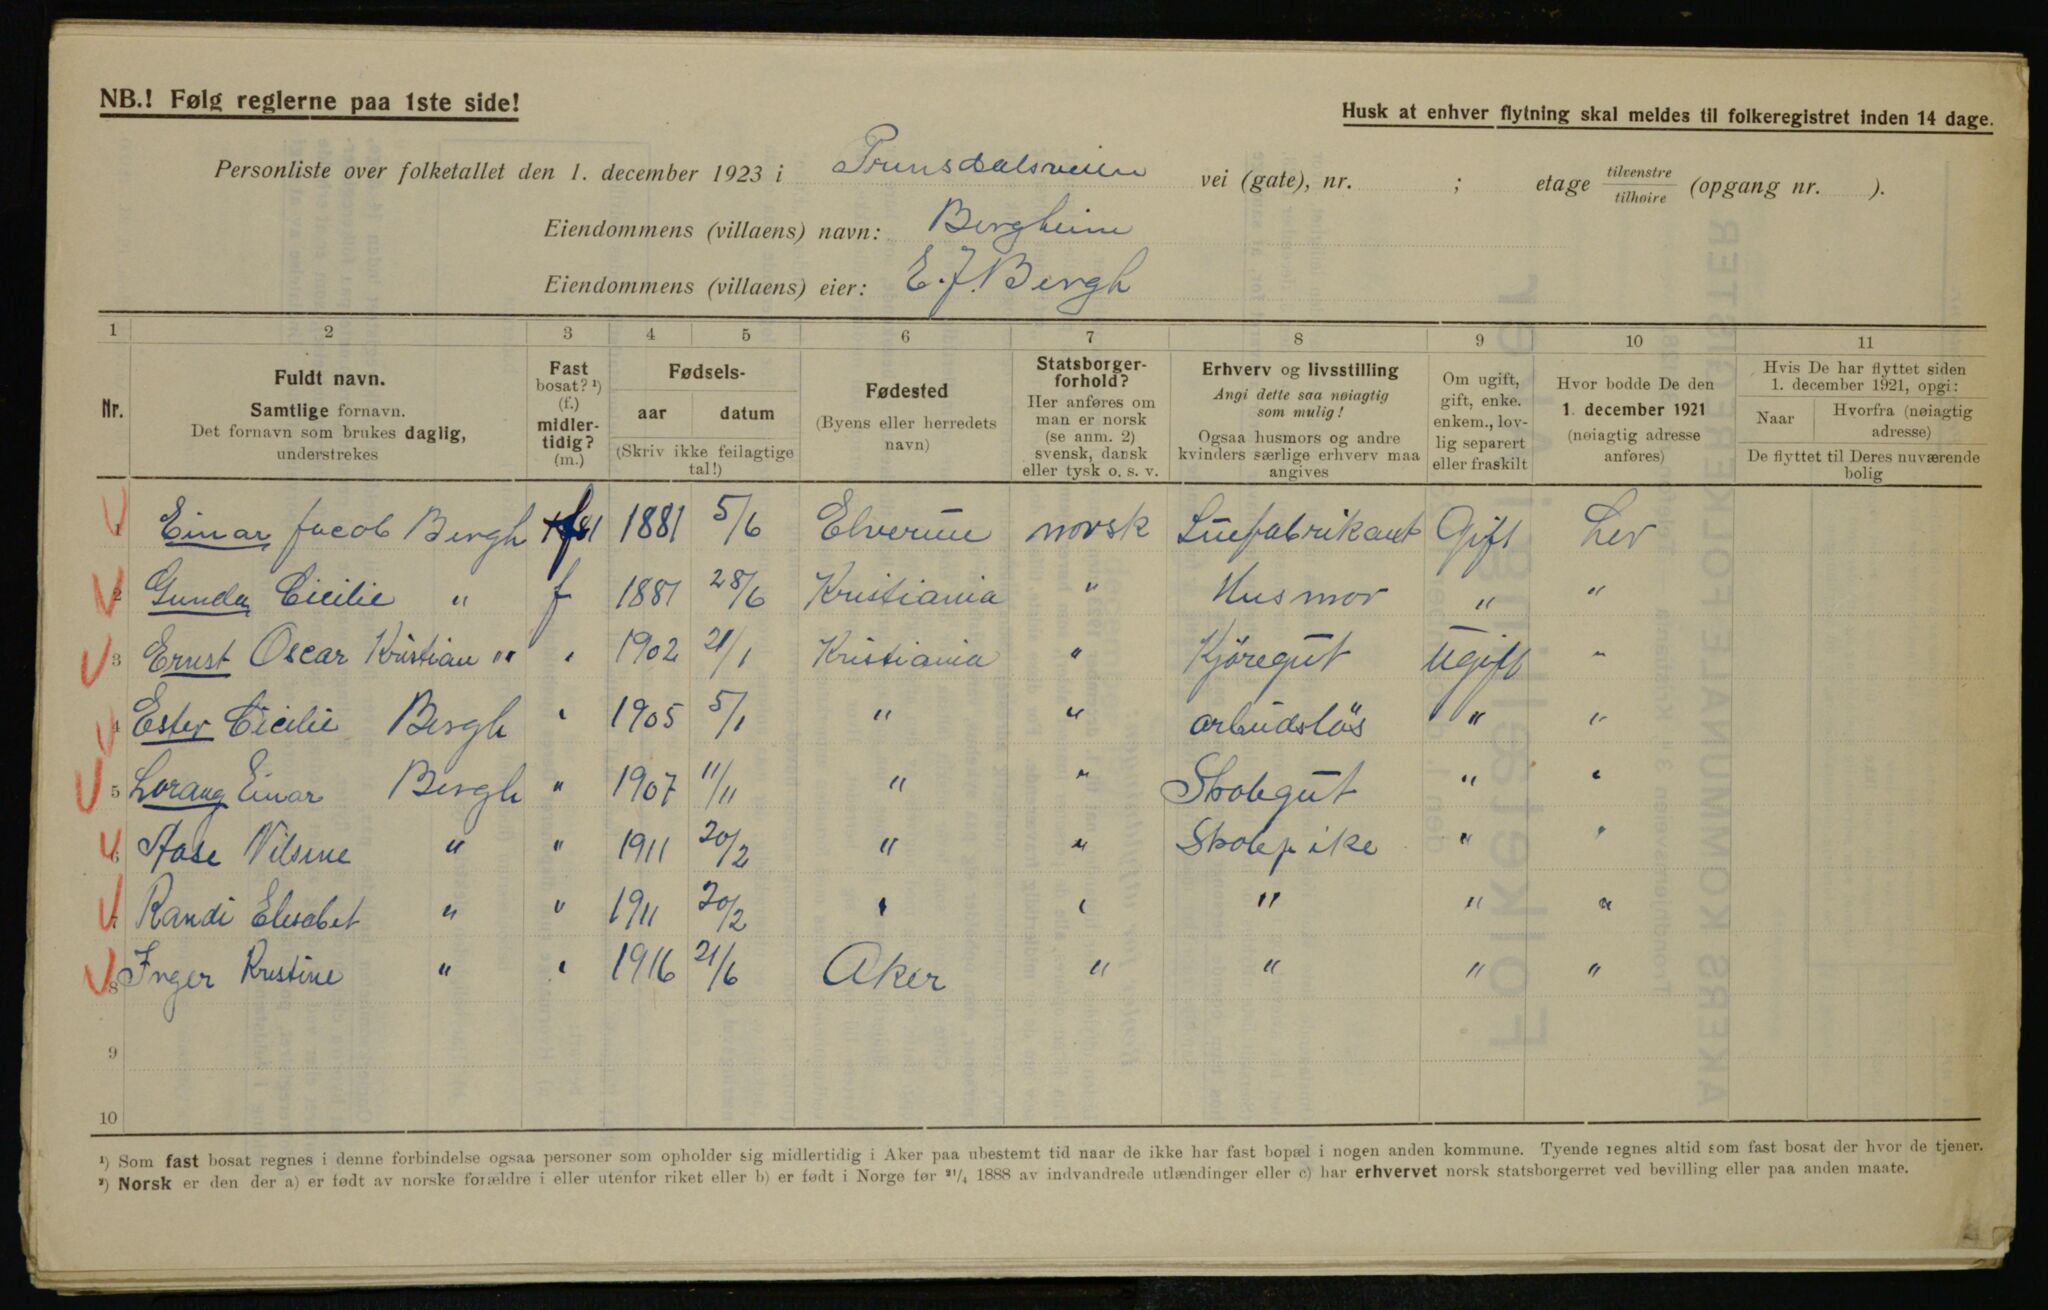 NB.! Følg reglerne paa 1ste side!
Husk at enhver flytning skal meldes til folkeregistret inden 14 dage.
Personliste over folketallet den 1. december 1923 i Prinsdalsveien vei (gate), nr. ; etage tilvenstre tilhøire (opgang nr. ).
Eiendommens (villaens) navn: Bergheim
Eiendommens (villaens) eier: E. J. Bergh
1 2 3 4 5 6 7 8 9 10 11
Nr.
Fuldt navn.
Samtlige fornavn.
Det fornavn som brukes daglig,
understrekes
Fast
bosat? ¹)
(f.)
midler-
tidig?
(m.)
Fødsels-
aar datum
(Skriv ikke feilagtige
tal!)
Fødested
(Byens eller herredets
navn)
Statsborger-
forhold?
Her anføres om
man er norsk
(se anm. 2)
svensk, dansk
eller tysk o. s. v.
Erhverv og livsstilling
Angi dette saa nøiagtig
som mulig!
Ogsaa husmors og andre
kvinders særlige erhverv maa
angives
Om ugift,
gift, enke.
enkem., lov-
lig separert
eller fraskilt
Hvor bodde De den
1. december 1921
(nøiagtig adresse
anføres)
Hvis De har flyttet siden
1. december 1921, opgi:
Naar Hvorfra (nøiagtig
adresse)
De flyttet til Deres nuværende
bolig
1 Einar Jacob Bergh f 1881 5/6 Elverum norsk Luefabrikant Gift Her
2 Gunda Cicilie " f 1881 28/6 Kristiania " Husmor " "
3 Ernst Oscar Kristian " " 1902 21/1 Kristiania " Kjöregut Ugift "
4 Ester Cicilie Bergh " 1905 5/1 " " arbeidslös " "
5 Lorang Einar Bergh " 1907 11/11 " " Skolegut " "
6 Aase Nilsine " " 1911 20/2 " " Skolepike " "
7 Randi Elisabet " " 1911 20/2 " " " " "
8 Inger Kristine " " 1916 21/6 Aker " " " "
9
10
¹) Som fast bosat regnes i denne forbindelse ogsaa personer som opholder sig midlertidig i Aker paa ubestemt tid naar de ikke har fast bopæl i nogen anden kommune. Tyende regnes altid som fast bosat der hvor de tjener.
²) Norsk er den der a) er født av norske forældre i eller utenfor riket eller b) er født i Norge før ²¹/₄ 1888 av indvandrede utlændinger eller c) har erhvervet norsk statsborgerret ved bevilling eller paa anden maate.